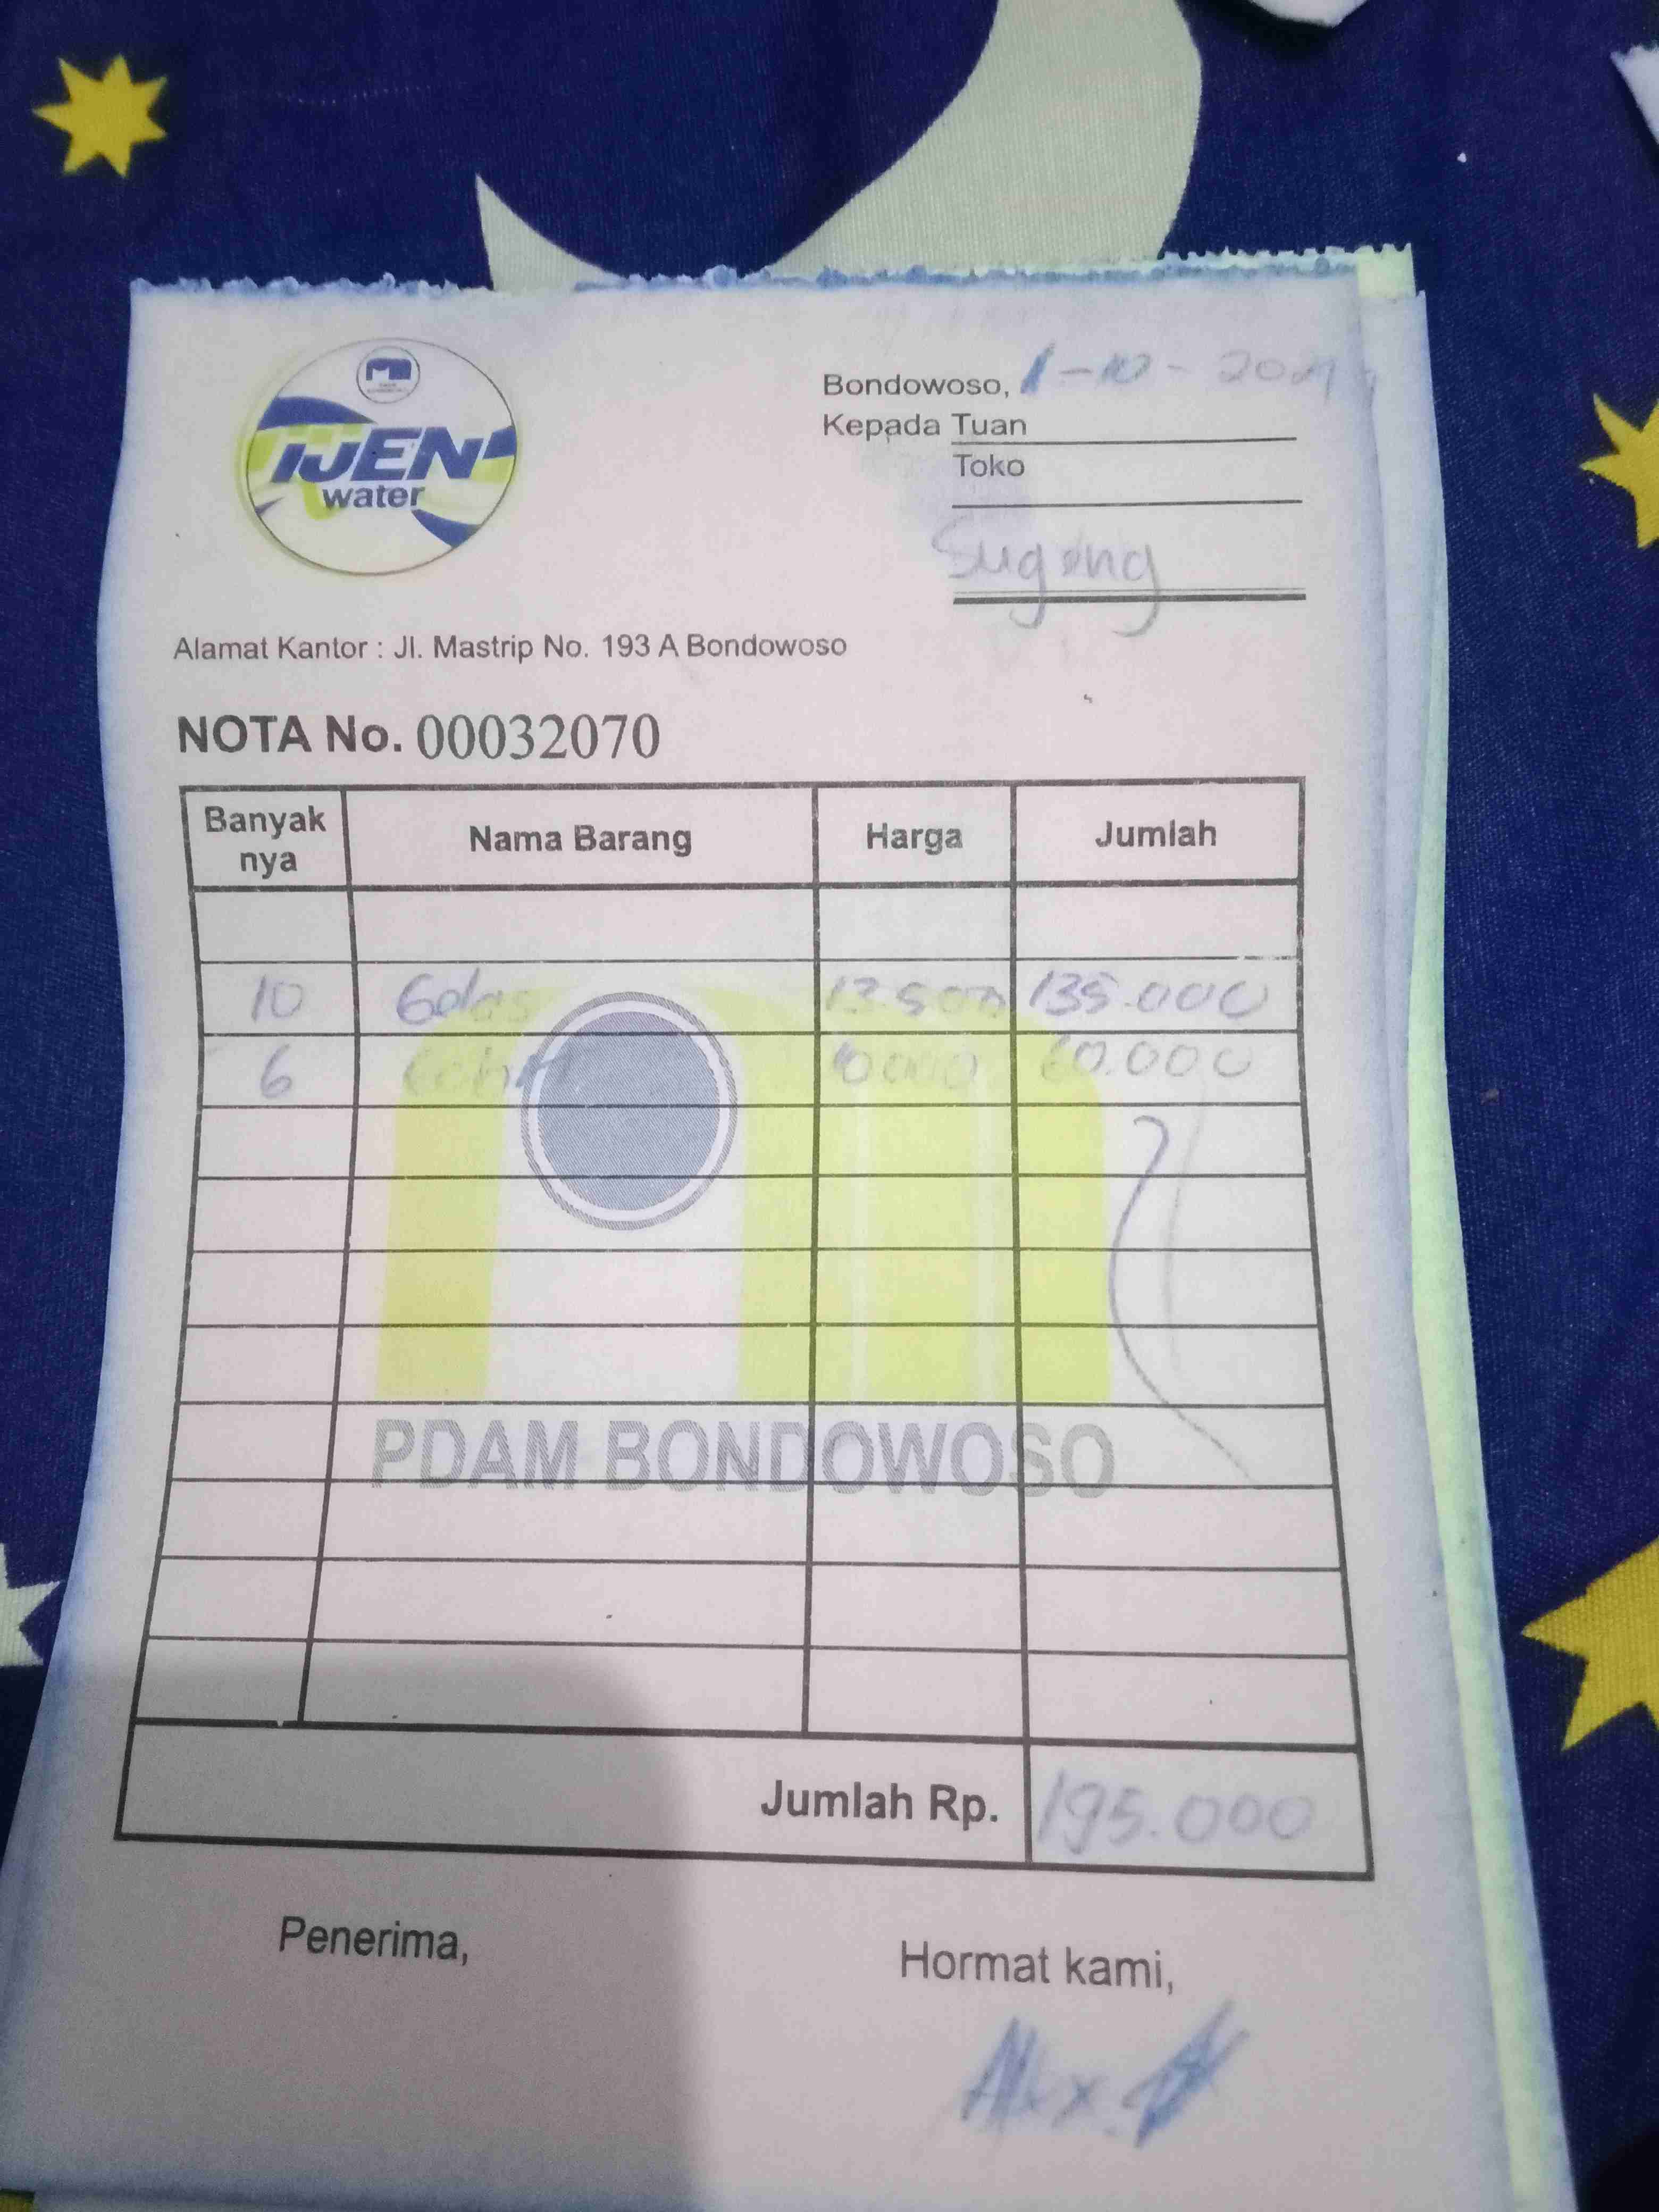 IJEN
water
Bondowoso, 1-10-2024
Kepada Tuan
Toko
Sugeng
Alamat Kantor : Jl. Mastrip No. 193 A Bondowoso
NOTA No. 00032070
Banyak nya Nama Barang Harga Jumlah
10 Gelas 13.500 135.000
6 10000 60.000
PDAM BONDOWOSO
Jumlah Rp. 195.000
Penerima,
Hormat kami,
Alex